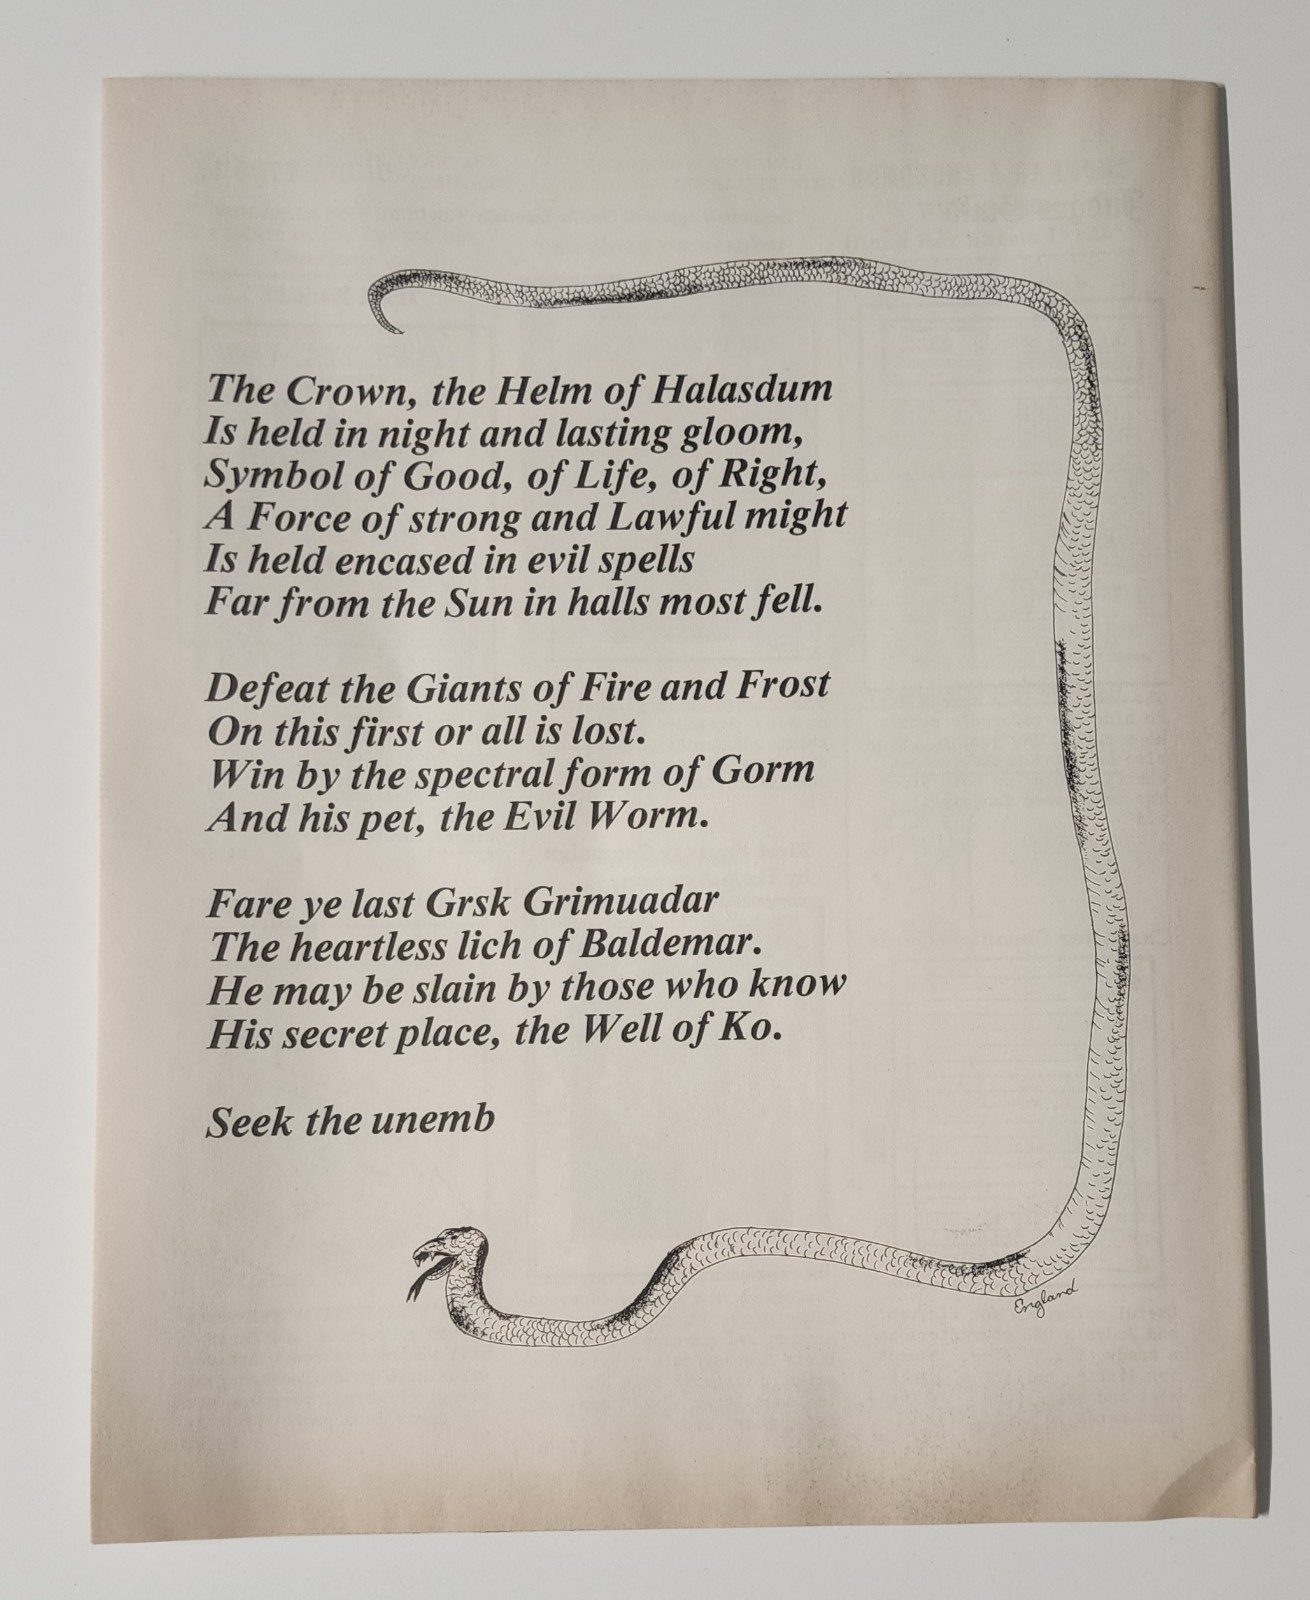 The Crown, the Helm of Halasdum
Is held in night and lasting gloom,
Symbol of Good, of Life, of Right,
A Force of strong and Lawful might
Is held encased in evil spells
Far from the Sun in halls most fell.
Defeat the Giants of Fire and Frost
On this first or all is lost.
Win by the spectral form of Gorm
And his pet, the Evil Worm.
Fare ye last Grsk Grimuadar
The heartless lich of Baldemar.
He may be slain by those who know
His secret place, the Well of Ko.
Seek the unemb
England